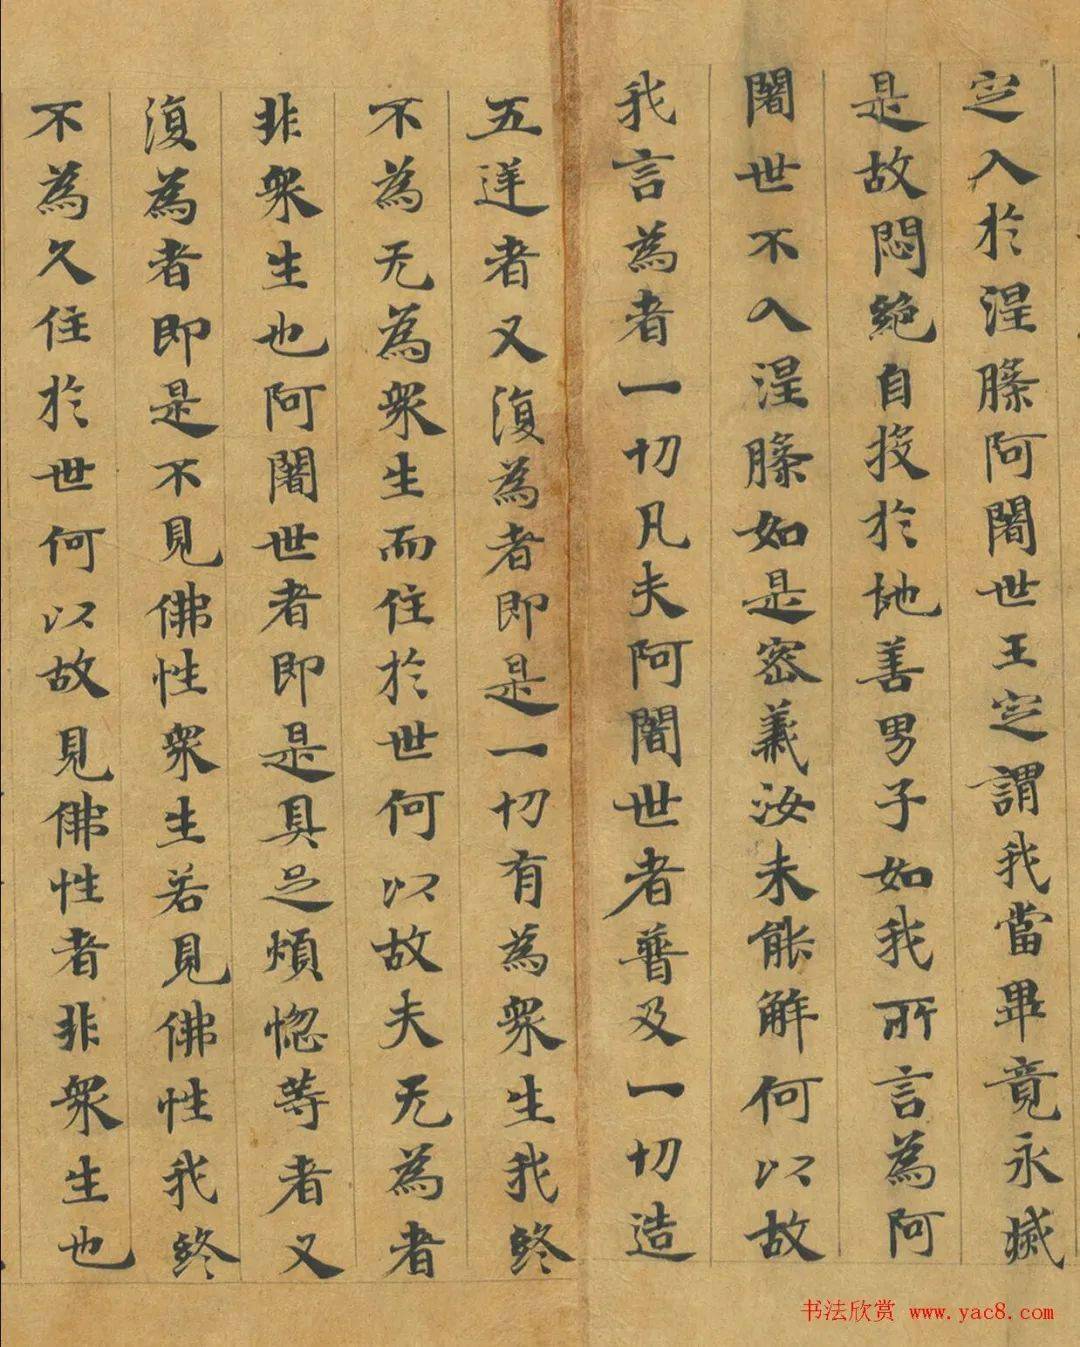 定入於涅槃阿闍世王定謂我當畢竟永滅
是故悶絕自投於地善男子如我所言為阿
闍世不入涅槃如是密義汝未能解何以故
我言為者一切凡夫阿闍世者普及一切造
五逆者又復為者即是一切有為眾生我終
不為无為眾生而住於世何以故夫无為者
非眾生也阿闍世者即是具足煩惱等者又
復為者即是不見佛性眾生若見佛性我終
不為久住於世何以故見佛性者非眾生也
书法欣赏 www.yac8.com